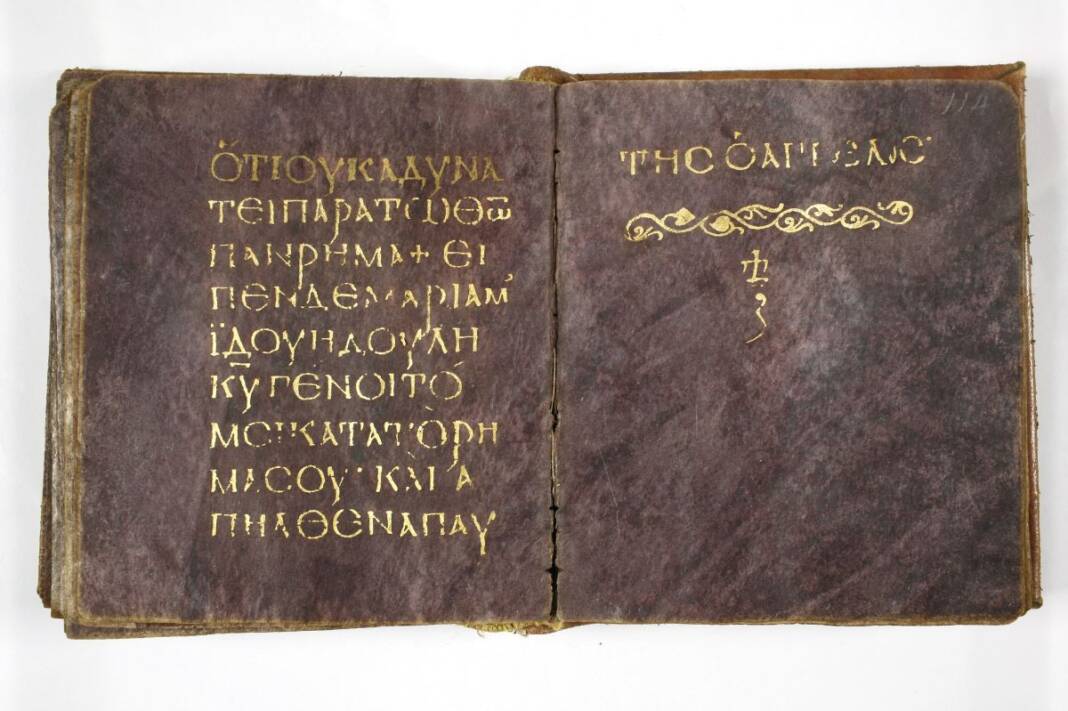 ὍΤΙΟΥΚΑΔΥΝΑ
ΤΕΙΠΑΡΑΤΩΘΩ̅
ΠΑΝΡΗΜΑ+ ΕΙ
ΠΕΝΔΕΜΑΡΙΑΜ᾽
ΪΔΟΥΗΔΟΥΛΗ
Κ̅Υ̅ ΓΕΝΟΙΤΟ
ΜΟΙΚΑΤΑΤῸΡΗ
ΜΑΣΟΥ· ΚΑῚΑ
ΠΗΛΘΕΝΑΠΑΥ
114
ΤΗΣ ὉΑΓΓΕΛΟΣ·